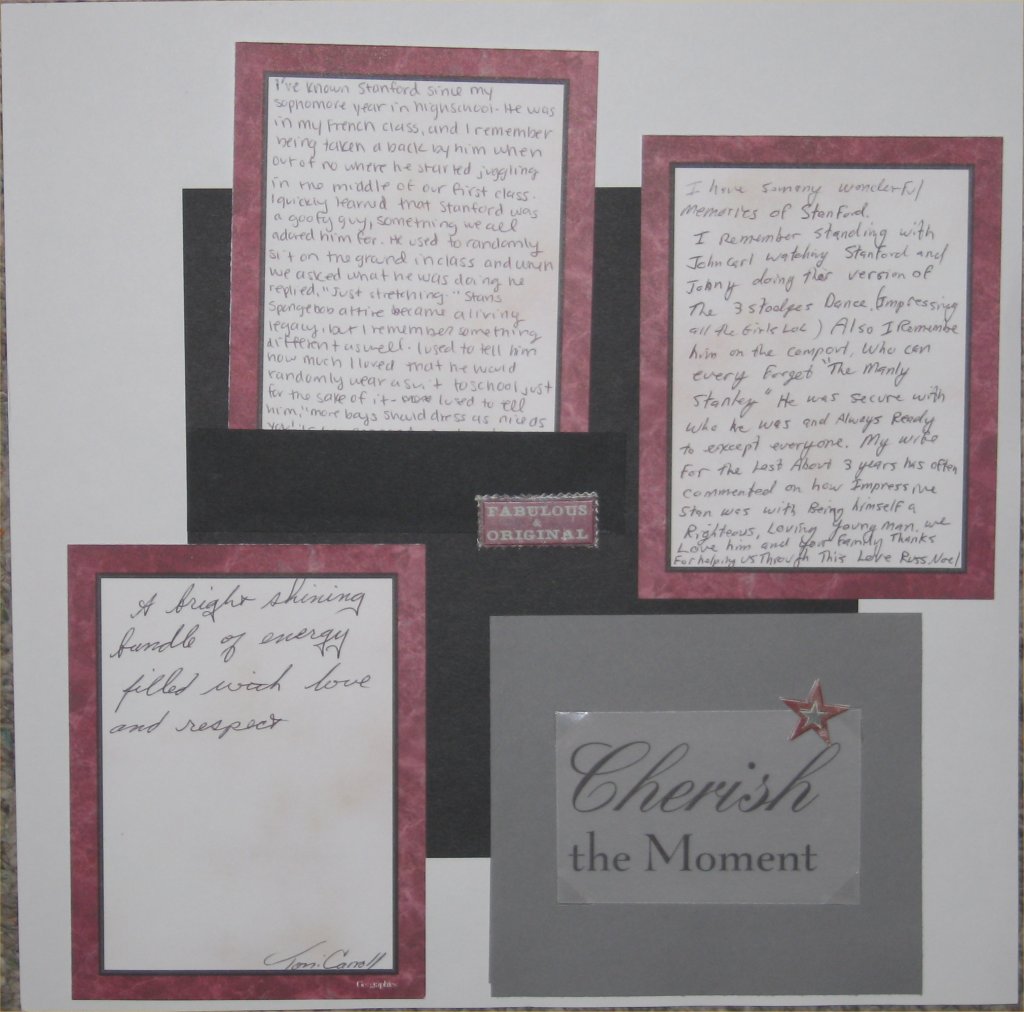 I've known Stanford since my
sophomore year in highschool. He was
in my French class, and I remember
being taken a back by him when
out of no where he started juggling
in the middle of our first class.
I quickly learned that Stanford was
a goofy guy, something we all
adored him for. He used to randomly
sit on the ground in class and when
we asked what he was doing he
replied, "Just stretching." Stan's
Spongebob attire became a living
legacy, but I remember something
different as well. I used to tell him
how much I loved that he would
randomly wear a suit to school just
for the sake of it. I used to tell
him, "more boys should dress as nice as
I have somany wonderful
memories of Stanford.
I Remember standing with
John Carl watching Stanford and
Johny doing their version of
The 3 stooges Dance. (Impressing
all the Girls LoL) Also I Remembe
him on the comport, who can
every Forget "The Manly
Stanley" He was secure with
who he was and Always Ready
to except everyone. My wife
For the Last About 3 years has often
commented on how Impressive
Stan was with Being himself a
Righteous, Loving young man. we
Love him and your Family Thanks
For helping us Through This Love Russ, Noel
FABULOUS
&
ORIGINAL
A bright shining
bundle of energy
filled with love
and respect
Toni Carroll
Geographics
Cherish
the Moment